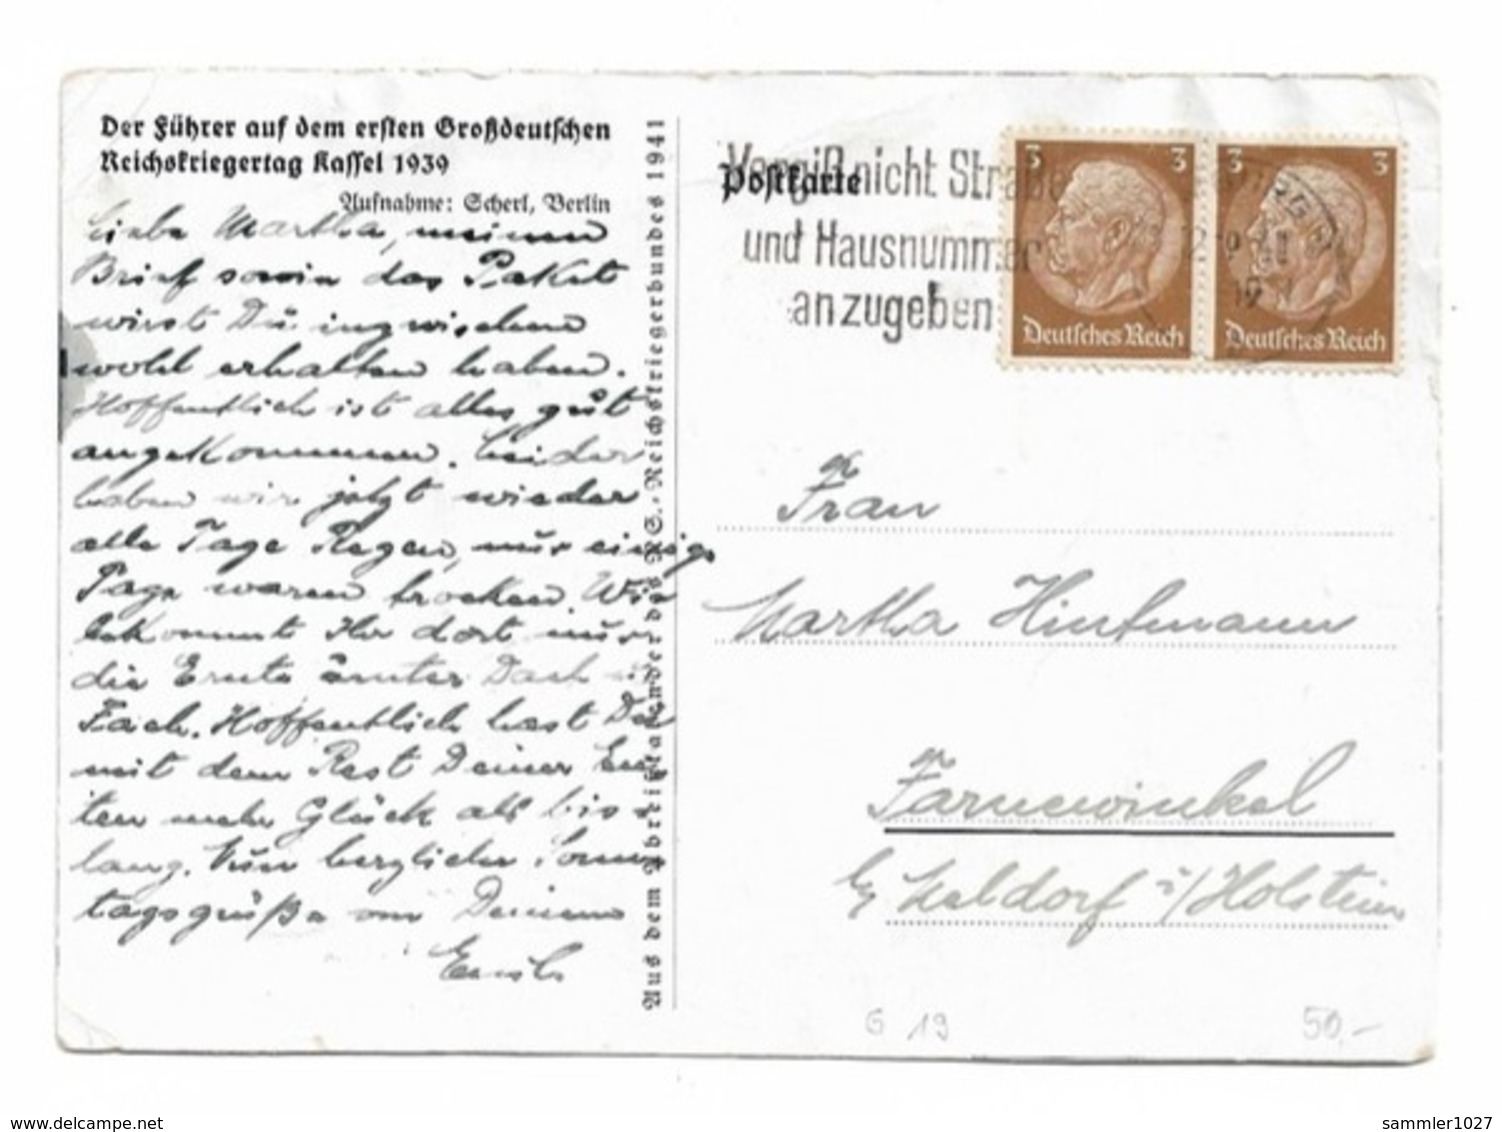 Der Führer auf dem ersten Großdeutschen
Reichskriegertag Kassel 1939
Aufnahme: Scherl, Berlin
Liebe Martha, meinen
Brief sowie das Paket
wirst Du inzwischen
wohl erhalten haben.
Hoffentlich ist alles gut
angekommen. Leider
haben wir jetzt wieder
alle Tage Regen, nur einige
Tage waren trocken. Wie
bekommt Ihr dort nur
die Ernte unter Dach u.
Fach. Hoffentlich hast Du
mit dem Rest Deiner En-
ten mehr Glück als bis-
lang. Nun herzliche Sonn-
tagsgrüße von Deinem
Aus dem Abreißkalender des NS.-Reichskriegerbundes 1941
Postkarte
Vergiß nicht Straße
und Hausnummer
anzugeben
3 3
Deutsches Reich
3 3
Deutsches Reich
Frau
Martha Hintmann
Farnewinkel
b/ Meldorf i/Holstein
G 19
50,-
delcampe.net
sammler1027